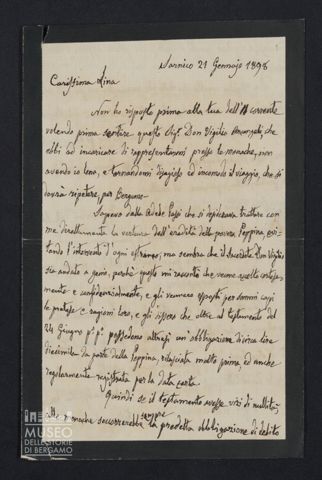 Sarnico 21 Gennajo 1898
Carissima Lina
Non ho risposto prima alla tua dell'11 corrente
volendo prima sentire questo Don Virgilio che
ebbi ad incaricare di rappresentarmi presso le monache, non
avendo io lena, e tornandomi disagiato ed incomodo il viaggio, che si
dovria ripetere, per Bergamo.
Sapevo dalla che si desiderava trattare con
me direttamente la vertenza dell'eredità della povera Peppina, evi-
tando l'intervento d'ogni estraneo, ma sembra che il Sacerdote Don Virgilio
sia andato a genio, perchè questi mi racconta che venne accolto cortese-
mente e confidenzialmente, e gli vennero esposti per sommi capi
le pretese e ragioni loro, e gli dissero che oltre al testamento del
24 Giugno p.° p.° possedono altresì un'obbligazione di lire
diecimila da parte della Peppina, rilasciata molto prima ed anche
regolarmente registrata per la data certa.
Quindi se il testamento avesse vizi di nullità,
alle monache soccorrerebbe sempre la predetta obbligazione di debito
MUSEO
DELLE STORIE
DI BERGAMO